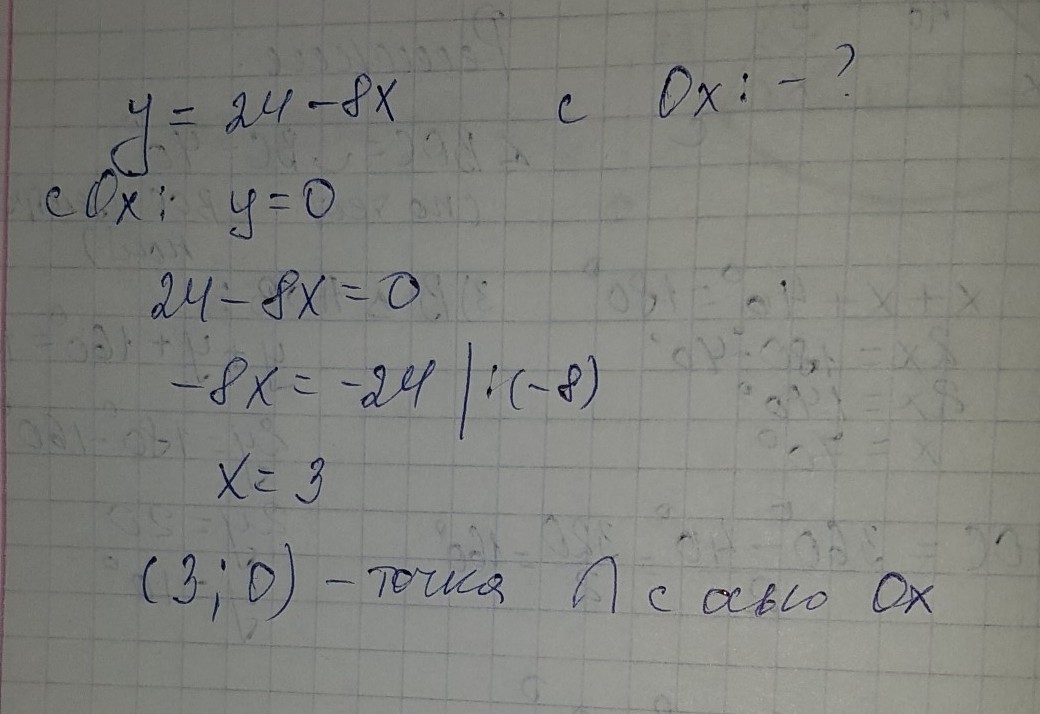 y = 24 - 8x с Ox: - ?
с Ox: y = 0
24 - 8x = 0
-8x = -24 | :(-8)
x = 3
(3; 0) - точка ∩ с осью Ox